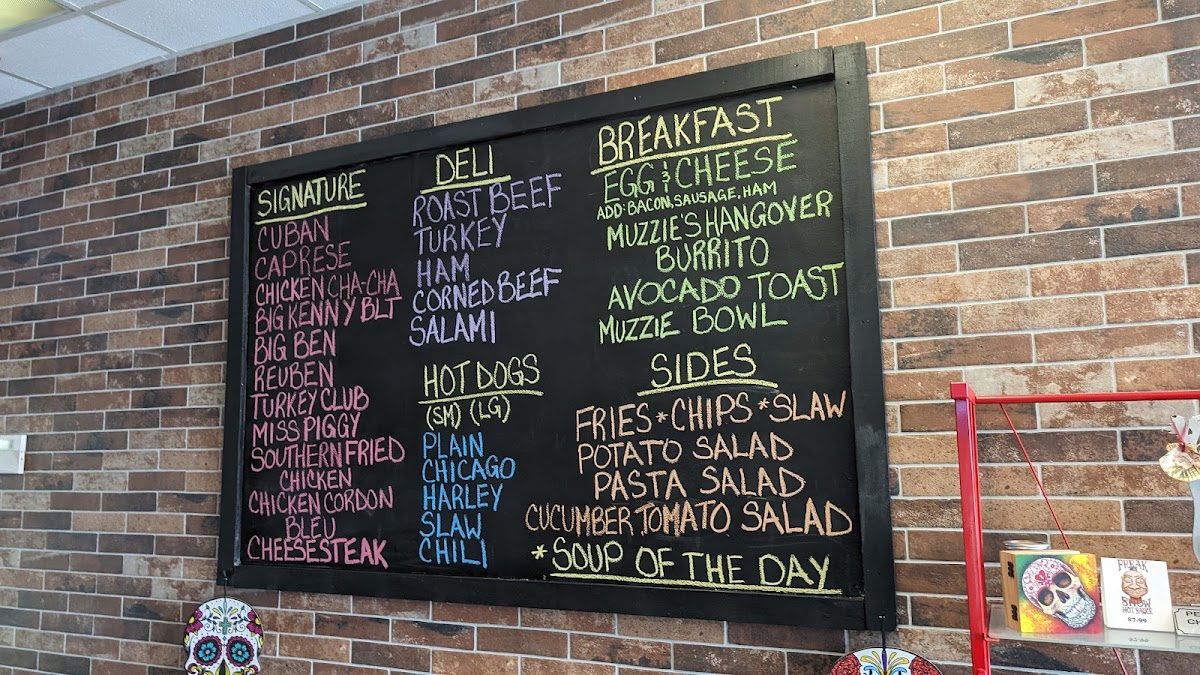 SIGNATURE
CUBAN
CAPRESE
CHICKEN CHA-CHA
BIG KENNY BLT
BIG BEN
REUBEN
TURKEY CLUB
MISS PIGGY
SOUTHERN FRIED
CHICKEN
CHICKEN CORDON
BLEU
CHEESESTEAK
DELI
ROAST BEEF
TURKEY
HAM
CORNED BEEF
SALAMI
HOT DOGS
(SM) (LG)
PLAIN
CHICAGO
HARLEY
SLAW
CHILI
BREAKFAST
EGG & CHEESE
ADD: BACON, SAUSAGE, HAM
MUZZIE'S HANGOVER
BURRITO
AVOCADO TOAST
MUZZIE BOWL
SIDES
FRIES * CHIPS * SLAW
POTATO SALAD
PASTA SALAD
CUCUMBER, TOMATO SALAD
* SOUP OF THE DAY
FREAK
SHOW
HOT SAUCE
$7.99